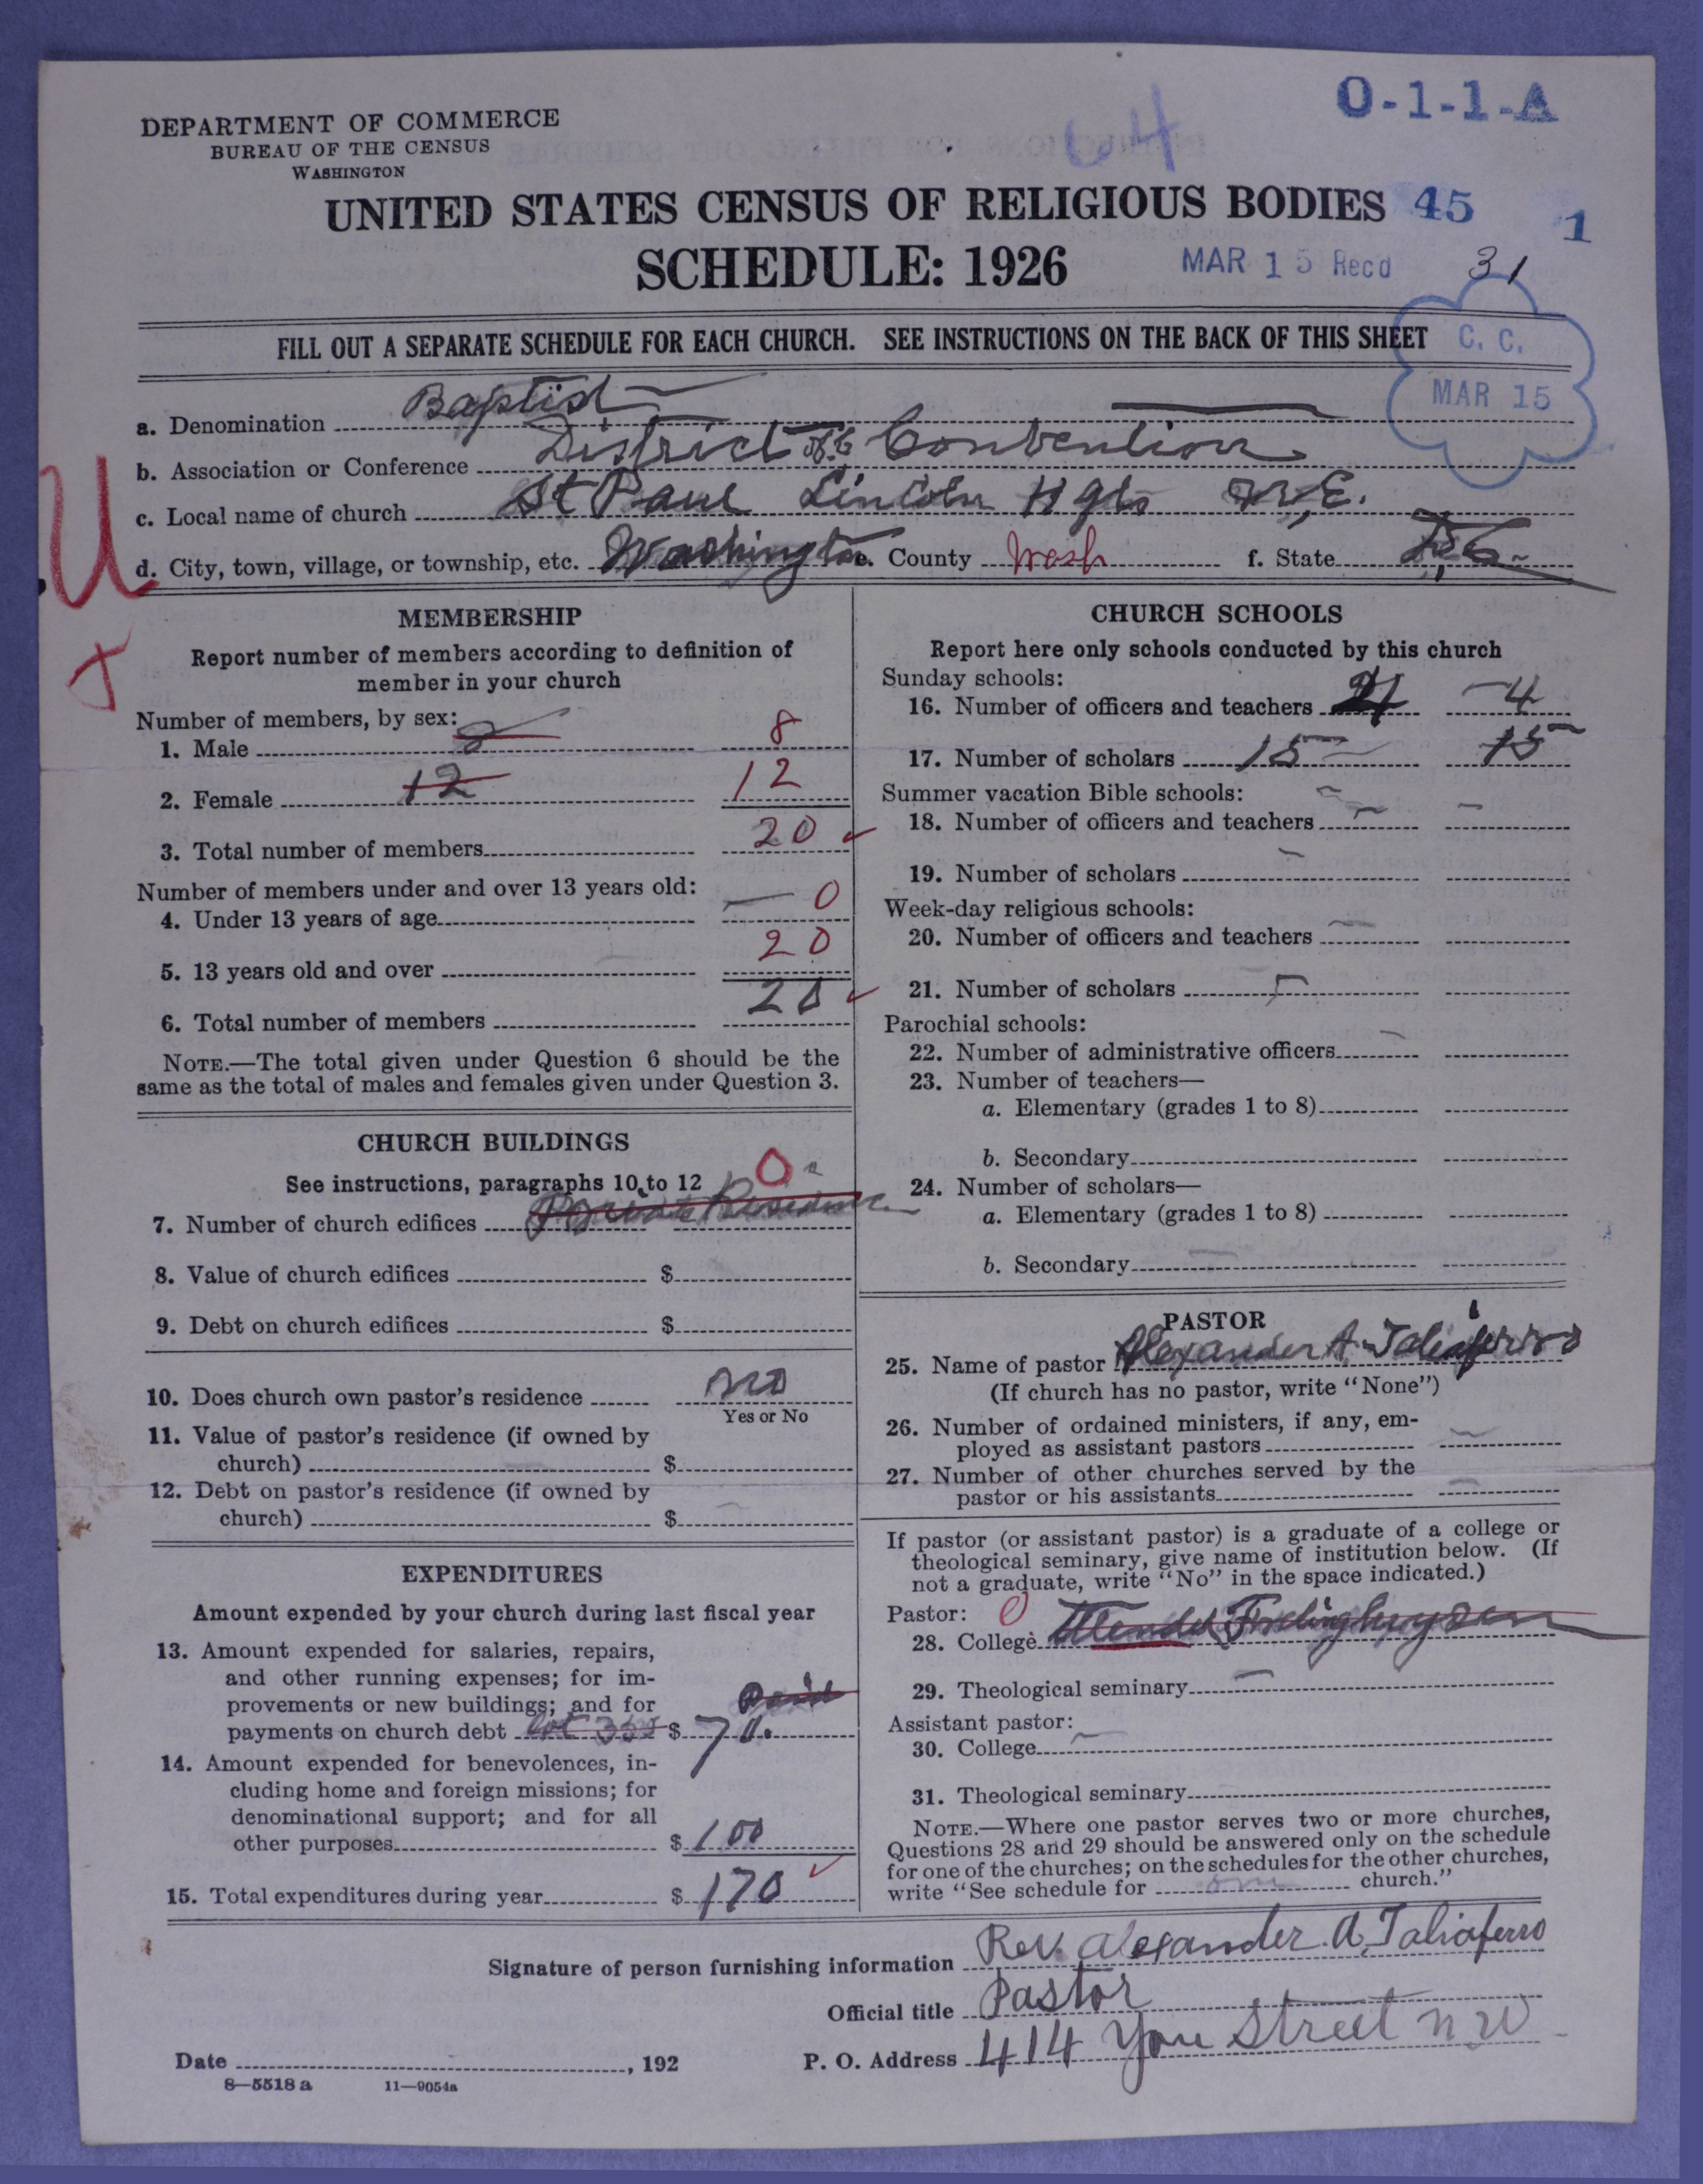 O-1-1-A
64
DEPARTMENT OF COMMERCE
BUREAU OF THE CENSUS
WASHINGTON
UNITED STATES CENSUS OF RELIGIOUS BODIES 45 1
SCHEDULE: 1926 MAR 15 Rec'd 31
FILL OUT A SEPARATE SCHEDULE FOR EACH CHURCH. SEE INSTRUCTIONS ON THE BACK OF THIS SHEET
C. C.
MAR 15
a. Denomination Baptist
b. Association or Conference District of C Convention
c. Local name of church St Paul Lincoln Hgts N.E.
d. City, town, village, or township, etc. Washington e. County Wash f. State D.C.
U
X
MEMBERSHIP
Report number of members according to definition of
member in your church
Number of members, by sex:
1. Male 8 8
2. Female 12 12
3. Total number of members 20 ✓
Number of members under and over 13 years old:
4. Under 13 years of age — 0
5. 13 years old and over 20
6. Total number of members 20 ✓
NOTE.—The total given under Question 6 should be the
same as the total of males and females given under Question 3.
CHURCH BUILDINGS
See instructions, paragraphs 10 to 12 0
7. Number of church edifices Private Residence
8. Value of church edifices $
9. Debt on church edifices $
10. Does church own pastor's residence no
Yes or No
11. Value of pastor's residence (if owned by
church) $
12. Debt on pastor's residence (if owned by
church) $
EXPENDITURES
Amount expended by your church during last fiscal year
13. Amount expended for salaries, repairs,
and other running expenses; for im-
provements or new buildings; and for Paid
payments on church debt lot $ 70.
14. Amount expended for benevolences, in-
cluding home and foreign missions; for
denominational support; and for all
other purposes $ 100
15. Total expenditures during year $ 170 ✓
CHURCH SCHOOLS
Report here only schools conducted by this church
Sunday schools:
16. Number of officers and teachers 4 4
17. Number of scholars 15 15
Summer vacation Bible schools:
18. Number of officers and teachers — —
19. Number of scholars —
Week-day religious schools:
20. Number of officers and teachers —
21. Number of scholars —
Parochial schools:
22. Number of administrative officers —
23. Number of teachers—
a. Elementary (grades 1 to 8)
b. Secondary
24. Number of scholars—
a. Elementary (grades 1 to 8)
b. Secondary —
PASTOR
25. Name of pastor Alexander A. Taliaferro
(If church has no pastor, write "None")
26. Number of ordained ministers, if any, em-
ployed as assistant pastors —
27. Number of other churches served by the
pastor or his assistants —
If pastor (or assistant pastor) is a graduate of a college or
theological seminary, give name of institution below. (If
not a graduate, write "No" in the space indicated.)
Pastor: 0
28. College
29. Theological seminary —
Assistant pastor:
30. College —
31. Theological seminary
NOTE.—Where one pastor serves two or more churches,
Questions 28 and 29 should be answered only on the schedule
for one of the churches; on the schedules for the other churches,
write "See schedule for one church."
Signature of person furnishing information Rev. Alexander A. Taliaferro
Official title Pastor
Date , 192 P. O. Address 414 You Street N W
8—5518 a 11—9054a